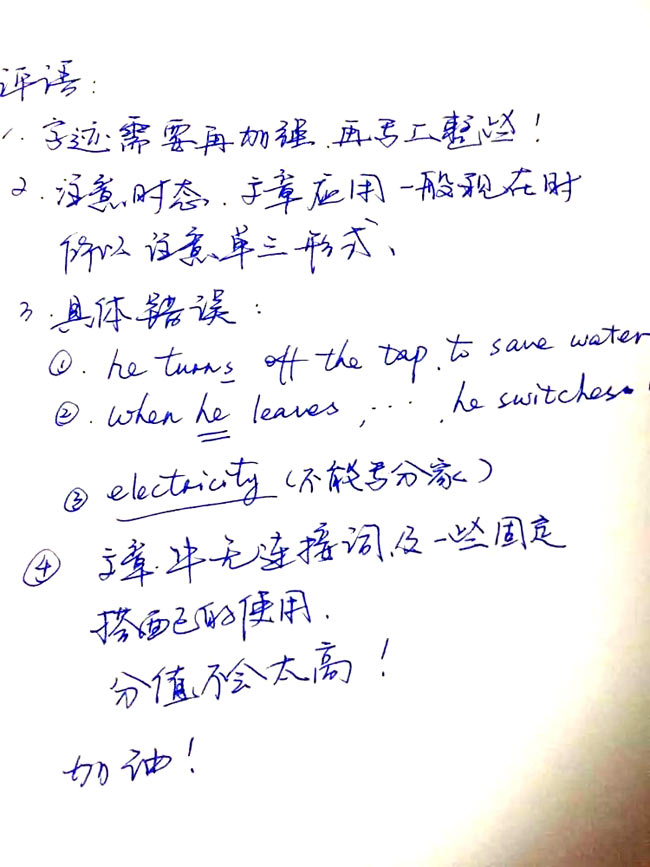 评语：
1. 字迹需要再加强.再写工整些！
2. 注意时态.文章应用一般现在时
所以注意单三形式、
3. 具体错误：
①. he turns off the tap. to save water
②. when he leaves ,…… , he switches
③ electricity (不能写分家)
④ 文章.中无连接词及一些固定
搭配的使用.
分值不会太高！
加油！